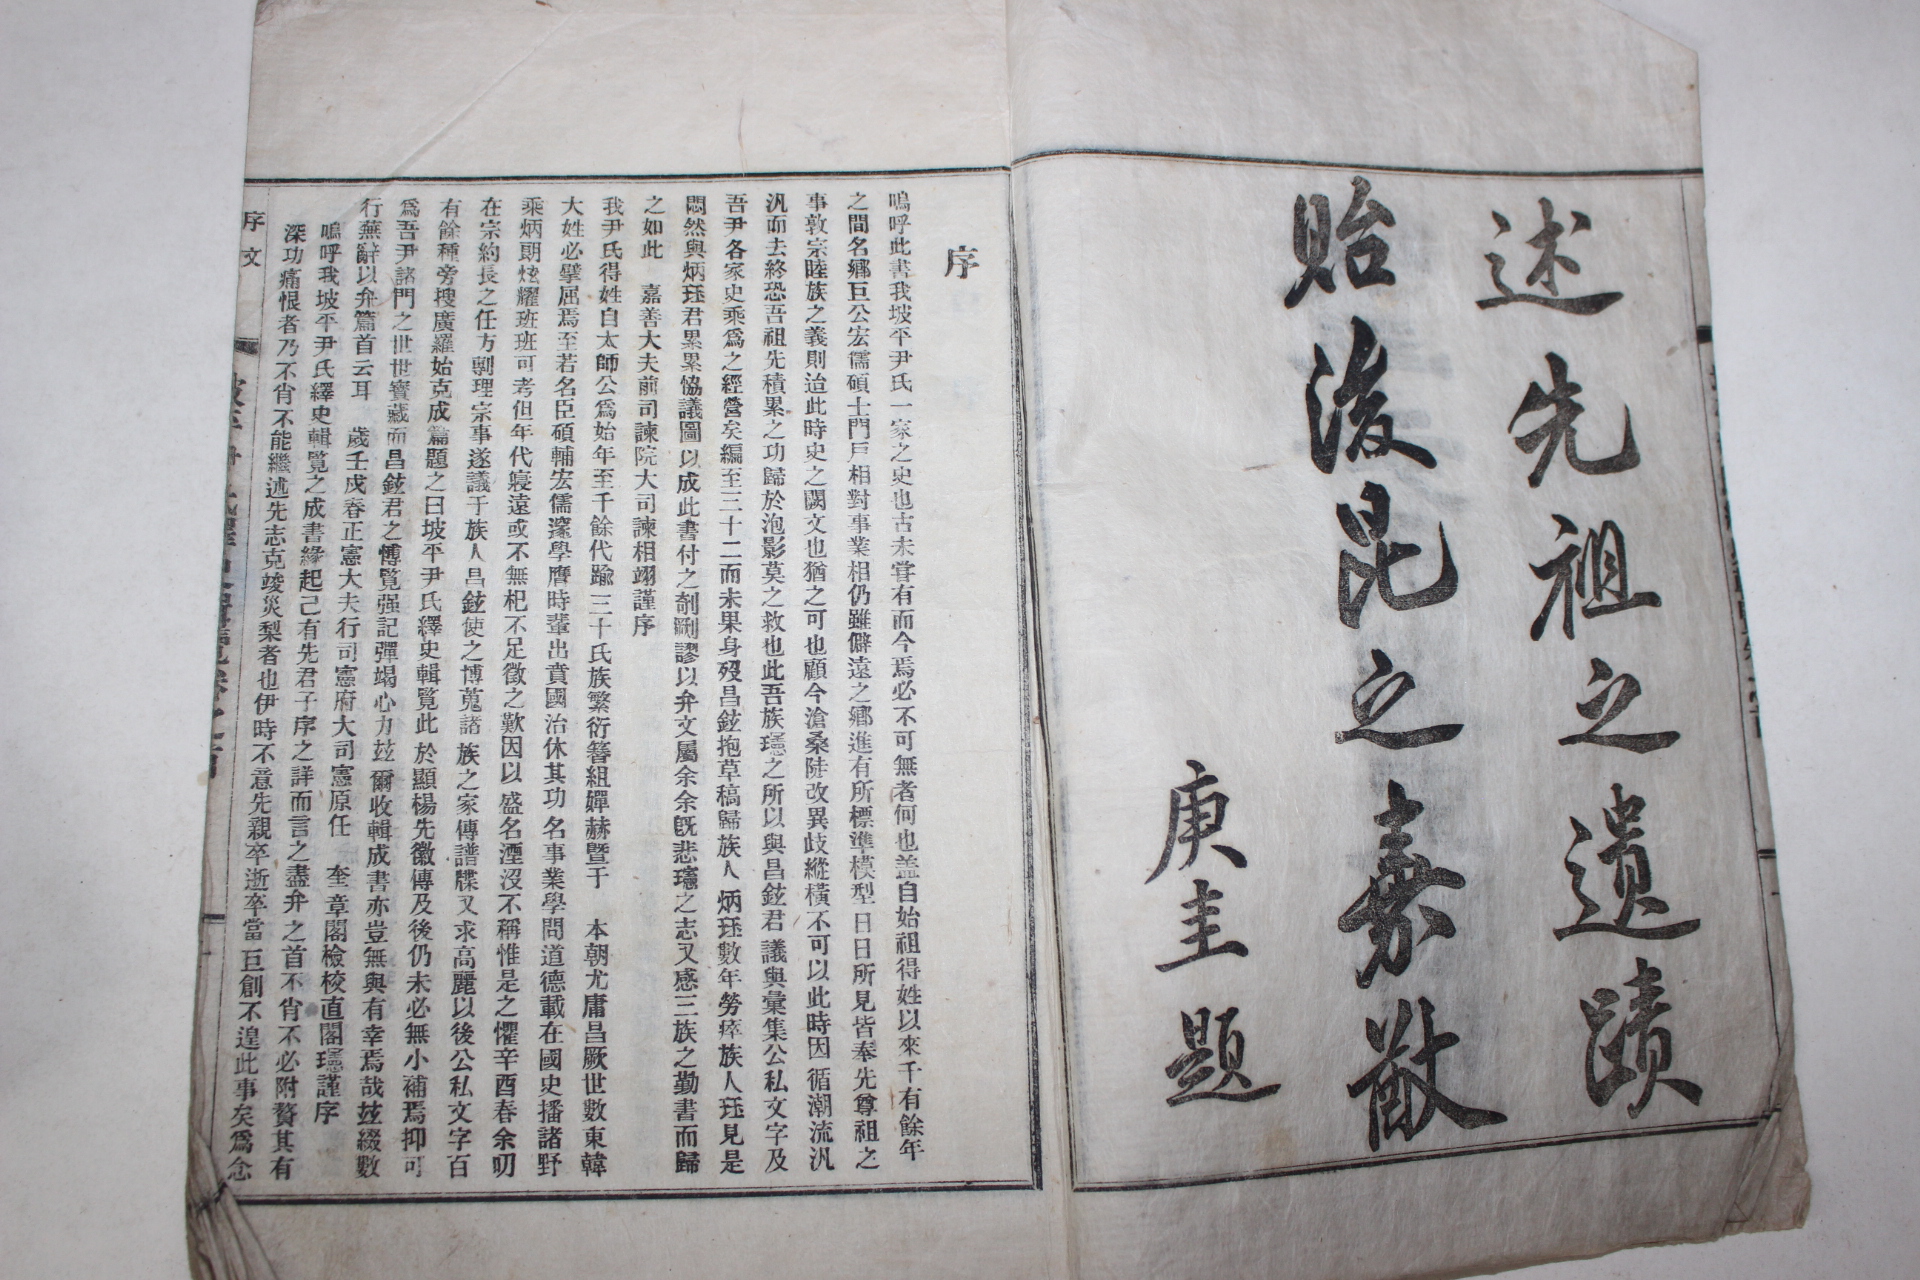 述先祖之遺蹟
貽後昆之嘉猷
庚圭題
序
嗚呼此書我坡平尹氏一家之史也古未嘗有而今焉必不可無者何也盖自始祖得姓以來千有餘年
之間名鄕巨公宏儒碩士門戶相對事業相仍雖僻遠之鄕進有所標準模型日日所見皆奉先尊祖之
事敦宗睦族之義則迨此時史之闕文也猶之可也顧今滄桑陡改異歧縱橫不可以此時因循潮流汎
汎而去終恐吾祖先積累之功歸於泡影莫之救也此吾族瓙之所以與昌鉉君議與彙集公私文字及
吾尹各家史乘爲之經營矣編至三十二而未果身歿昌鉉抱草稿歸族人炳珏數年勞瘁族人珏見是
悶然與炳珏君累累恊議圖以成此書付之剞劂謬以弁文屬余余旣悲瓙之志又感三族之勤書而歸
之如此 嘉善大夫前司諫院大司諫相翊謹序
我尹氏得姓自太師公爲始年至千餘代踰三十氏族繁衍簪組嬋赫曁于 本朝尤庸昌厥世數東韓
大姓必擘屈焉至若名臣碩輔宏儒邃學膺時輩出賁國治休其功名事業學問道德載在國史播諸野
乘炳朗炫耀班班可考但年代寢遠或不無杞不足徵之歎因以盛名湮沒不稱惟是之懼辛酉春余叨
在宗約長之任方剸理宗事遂議于族人昌鉉使之博蒐諸族之家傳譜牒又求高麗以後公私文字百
有餘種旁搜廣羅始克成篇題之曰坡平尹氏繹史輯覽此於顯楊先徽傳及後仍未必無小補焉抑可
爲吾尹諸門之世世寶藏而昌鉉君之博覽强記彈竭心力玆爾收輯成書亦豈無與有幸焉哉玆綴數
行蕪辭以弁篇首云耳 歲壬戌春正憲大夫行司憲府大司憲原任 奎章閣檢校直閣瓙謹序
嗚呼我坡平尹氏繹史輯覽之成書緣起己有先君子序之詳而言之盡弁之首不肖不必附贅其有
深功痛恨者乃不肖不能繼述先志克竣災梨者也伊時不意先親卒逝卒當巨創不遑此事矣爲念
序文